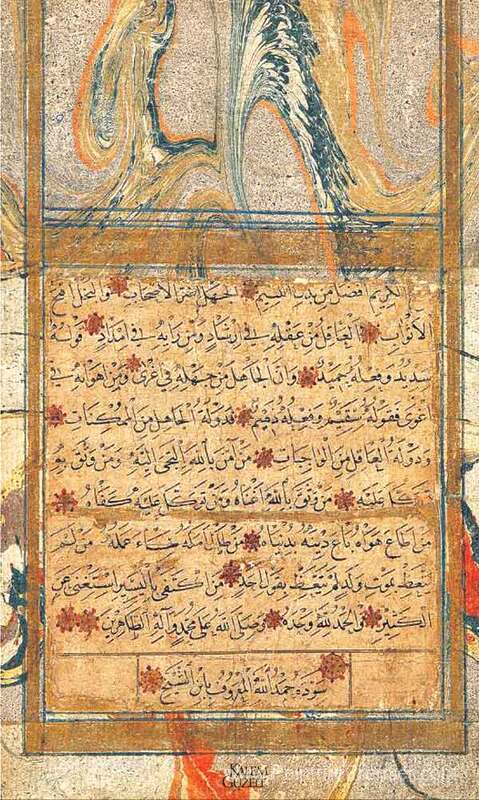 الكريم افضل من الجهل اضر الاصحاب والبخل
الاثواب العاقل من عقله في ارشاد ومن رأيه في امداد فقوله
سديد وفعله حميد وان الجاهل من جهله في ومن اهوائه في
اغوى فقوله سقيم وفعله ذميم فدولة الجاهل من الممكنات
ودولة العاقل من الواجبات من آمن بالله التجى اليه ومن وثق به
توكل عليه من وثق بالله اغناه ومن توكل عليه كفاه
من اطاع هواه باع دينه بدنياه من طال امله ساء عمله من لم
يتعظ بموت ولد لم يتعظ بقول احد من اكتفى باليسير استغنى عن
الكثير والحمد لله وحده وصلى الله على محمد وآله الطاهرين
سوده حمد الله المعروف بابن الشيخ
KALEM
GÜZELİ